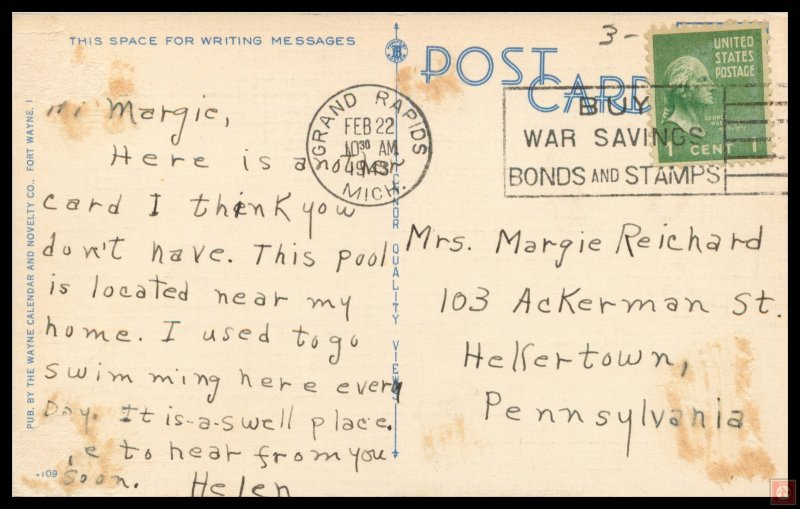 THIS SPACE FOR WRITING MESSAGES
POST CARD
3-
UNITED STATES POSTAGE
1 CENT 1
GRAND RAPIDS
FEB 22
10 30 AM
1943
MICH.
BUY
WAR SAVINGS
BONDS AND STAMPS
Hi Margie,
Here is another
card I think you
don't have. This pool
is located near my
home. I used to go
swimming here every
Day. It is-a-swell place.
to hear from you
soon. Helen
Mrs. Margie Reichard
103 Ackerman St.
Hellertown,
Pennsylvania
PUB. BY THE WAYNE CALENDAR AND NOVELTY CO., FORT WAYNE, I
QUALITY VIEWS
109